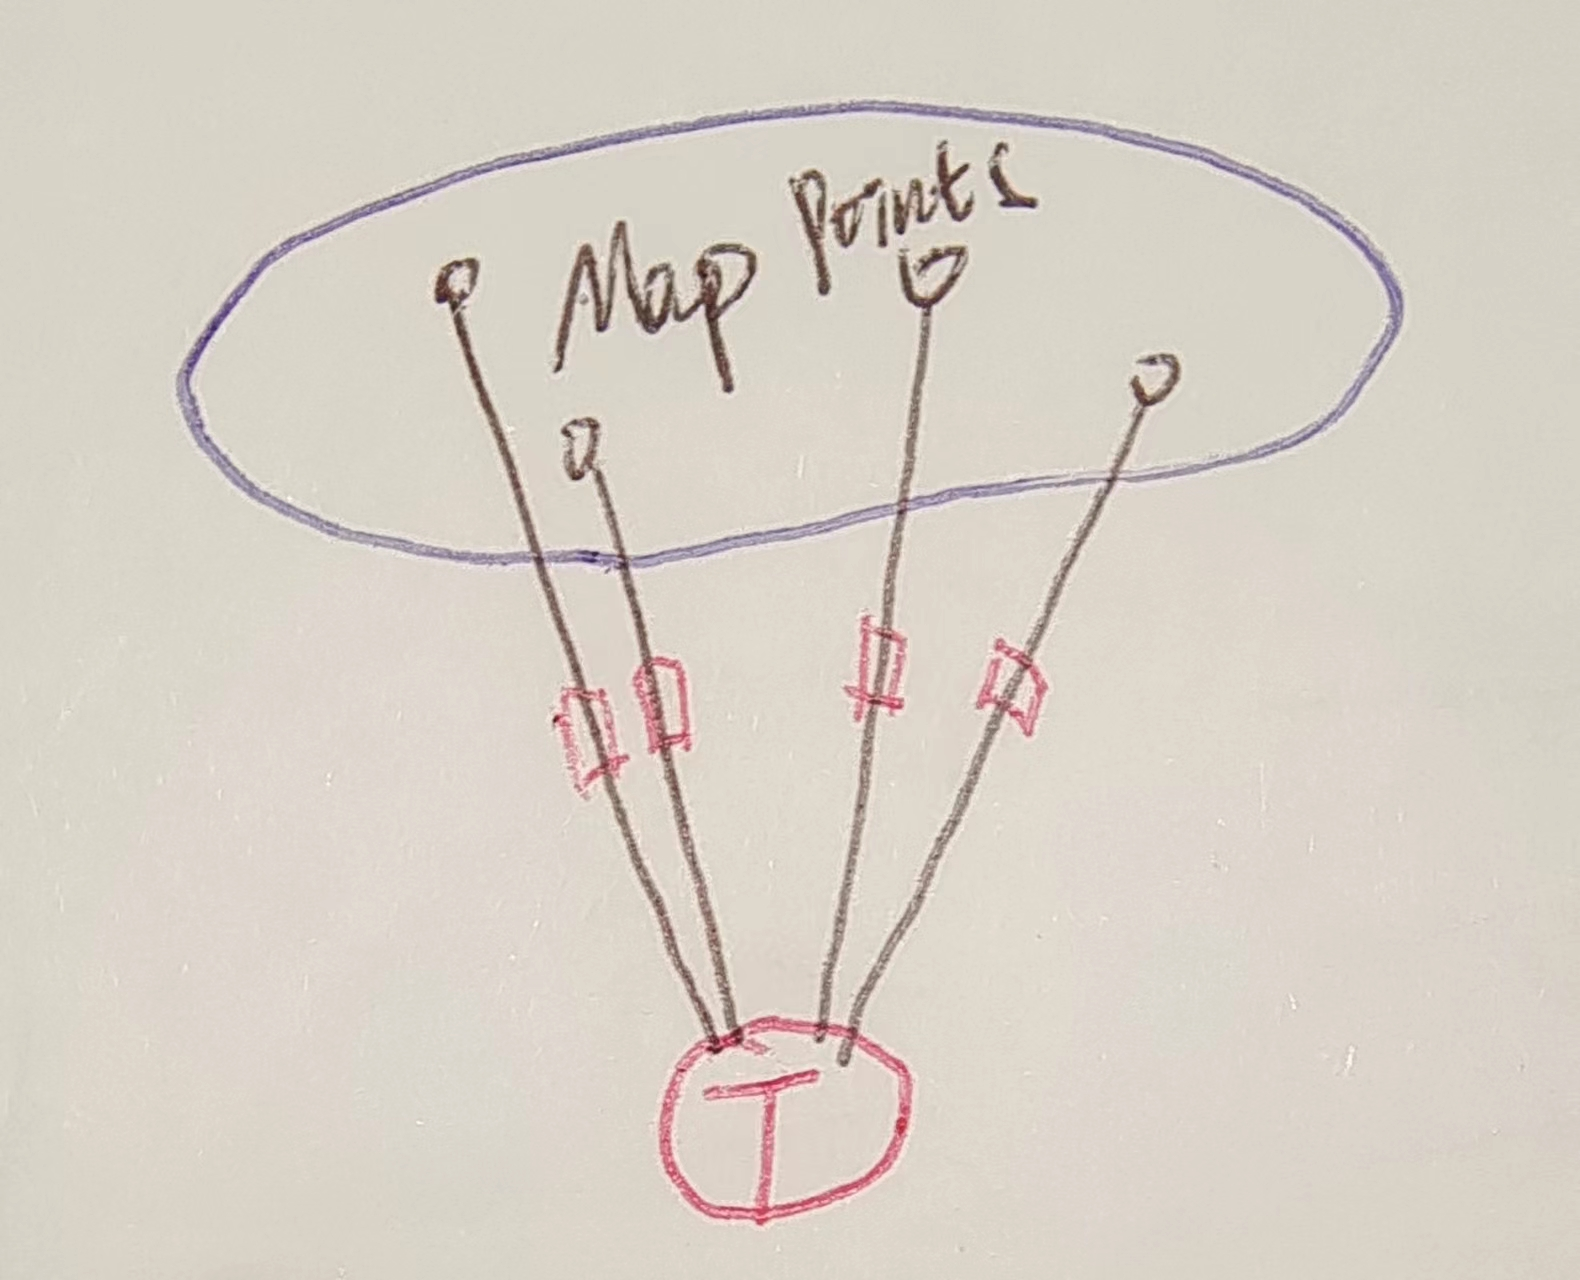 Map Points
T